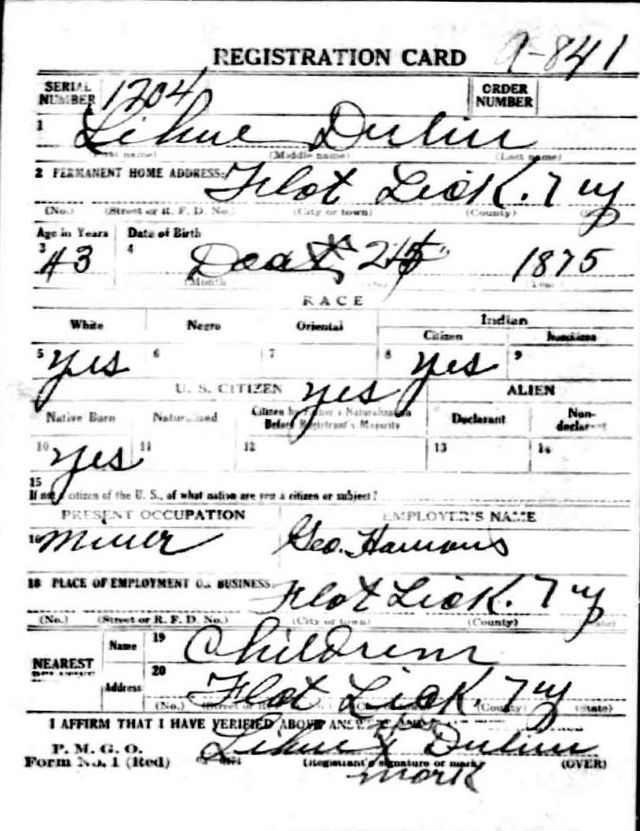 REGISTRATION CARD 9-841
SERIAL NUMBER 1204 ORDER NUMBER
1 Lihue Dulin
(First name) (Middle name) (Last name)
2 PERMANENT HOME ADDRESS: Flat Lick. Ky
(No.) (Street or R. F. D. No.) (City or town) (County) (State)
Age in Years Date of Birth
3 43 4 25 1875
(Month) (Year)
RACE
White Negro Oriental Indian
Citizen Noncitizen
5 yes 6 7 8 yes 9
U. S. CITIZEN yes ALIEN
Native Born Naturalized Citizen by Father's Naturalization Before Registrant's Majority Declarant Non-declarant
10 yes 11 12 13 14
15
If not a citizen of the U. S., of what nation are you a citizen or subject?
PRESENT OCCUPATION EMPLOYER'S NAME
16 Miner Geo. Hamons
18 PLACE OF EMPLOYMENT OR BUSINESS: Flat Lick. Ky
(No.) (Street or R. F. D. No.) (City or town) (County) (State)
NEAREST RELATIVE Name 19 Children
Address 20 Flat Lick. Ky
(No.) (Street or R. F. D. No.) (County) (State)
I AFFIRM THAT I HAVE VERIFIED ABOVE ANSWERS
P. M. G. O. Lihue X Dulin
Form No. 1 (Red) (Registrant's signature or mark) (OVER)
mark